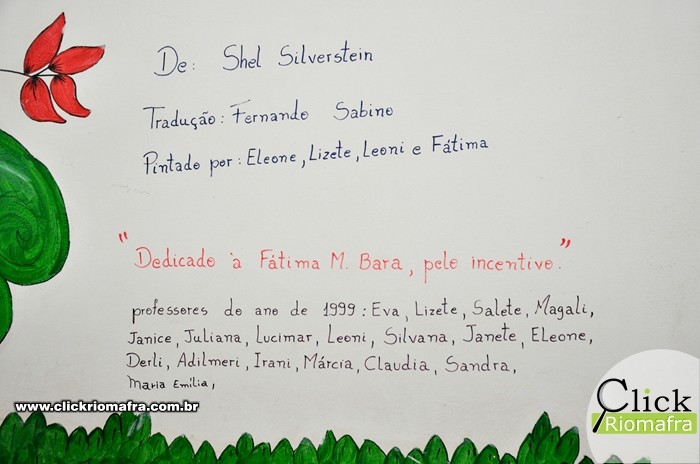 De: Shel Silverstein
Tradução: Fernando Sabino
Pintado por: Eleone, Lizete, Leoni e Fátima
"Dedicado à Fátima M. Bara, pelo incentivo."
professores do ano de 1999: Eva, Lizete, Salete, Magali,
Janice, Juliana, Lucimar, Leoni, Silvana, Janete, Eleone,
Derli, Adilmeri, Irani, Márcia, Claudia, Sandra,
Maria Emília,
www.clickriomafra.com.br
Click
Riomafra